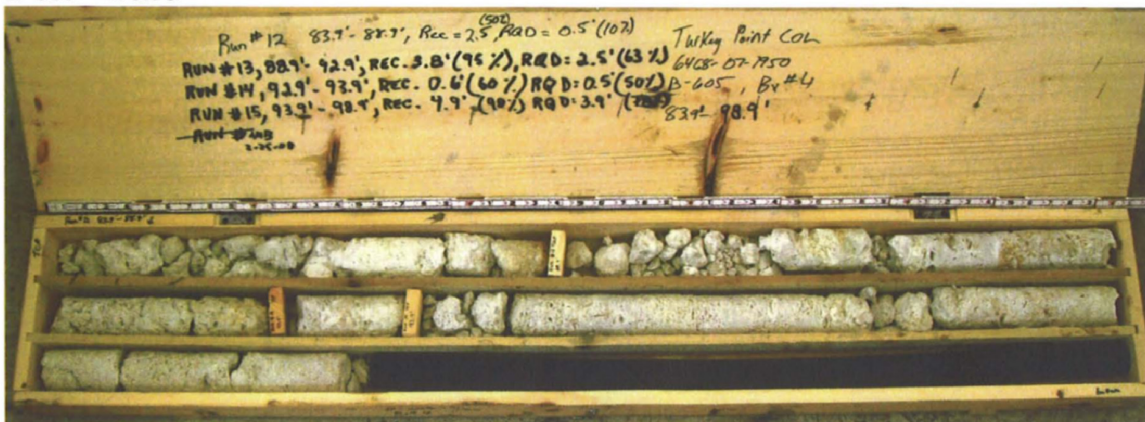 Run #12 83.9'- 88.9', Rec = 2.5' (50%), RQD = 0.5' (10%)
RUN #13, 88.9'- 92.9', REC. 3.8' (95 %), RQD: 2.5' (63 %)
RUN #14, 92.9'- 93.9', REC. 0.6' (60 %) RQD: 0.5' (50%)
RUN #15, 93.9'- 98.9', REC. 4.9' (98%) RQD: 3.9'
RUN
Turkey Point COL
6468-07-1950
B-605, Bx #4
83.9'- 98.9'